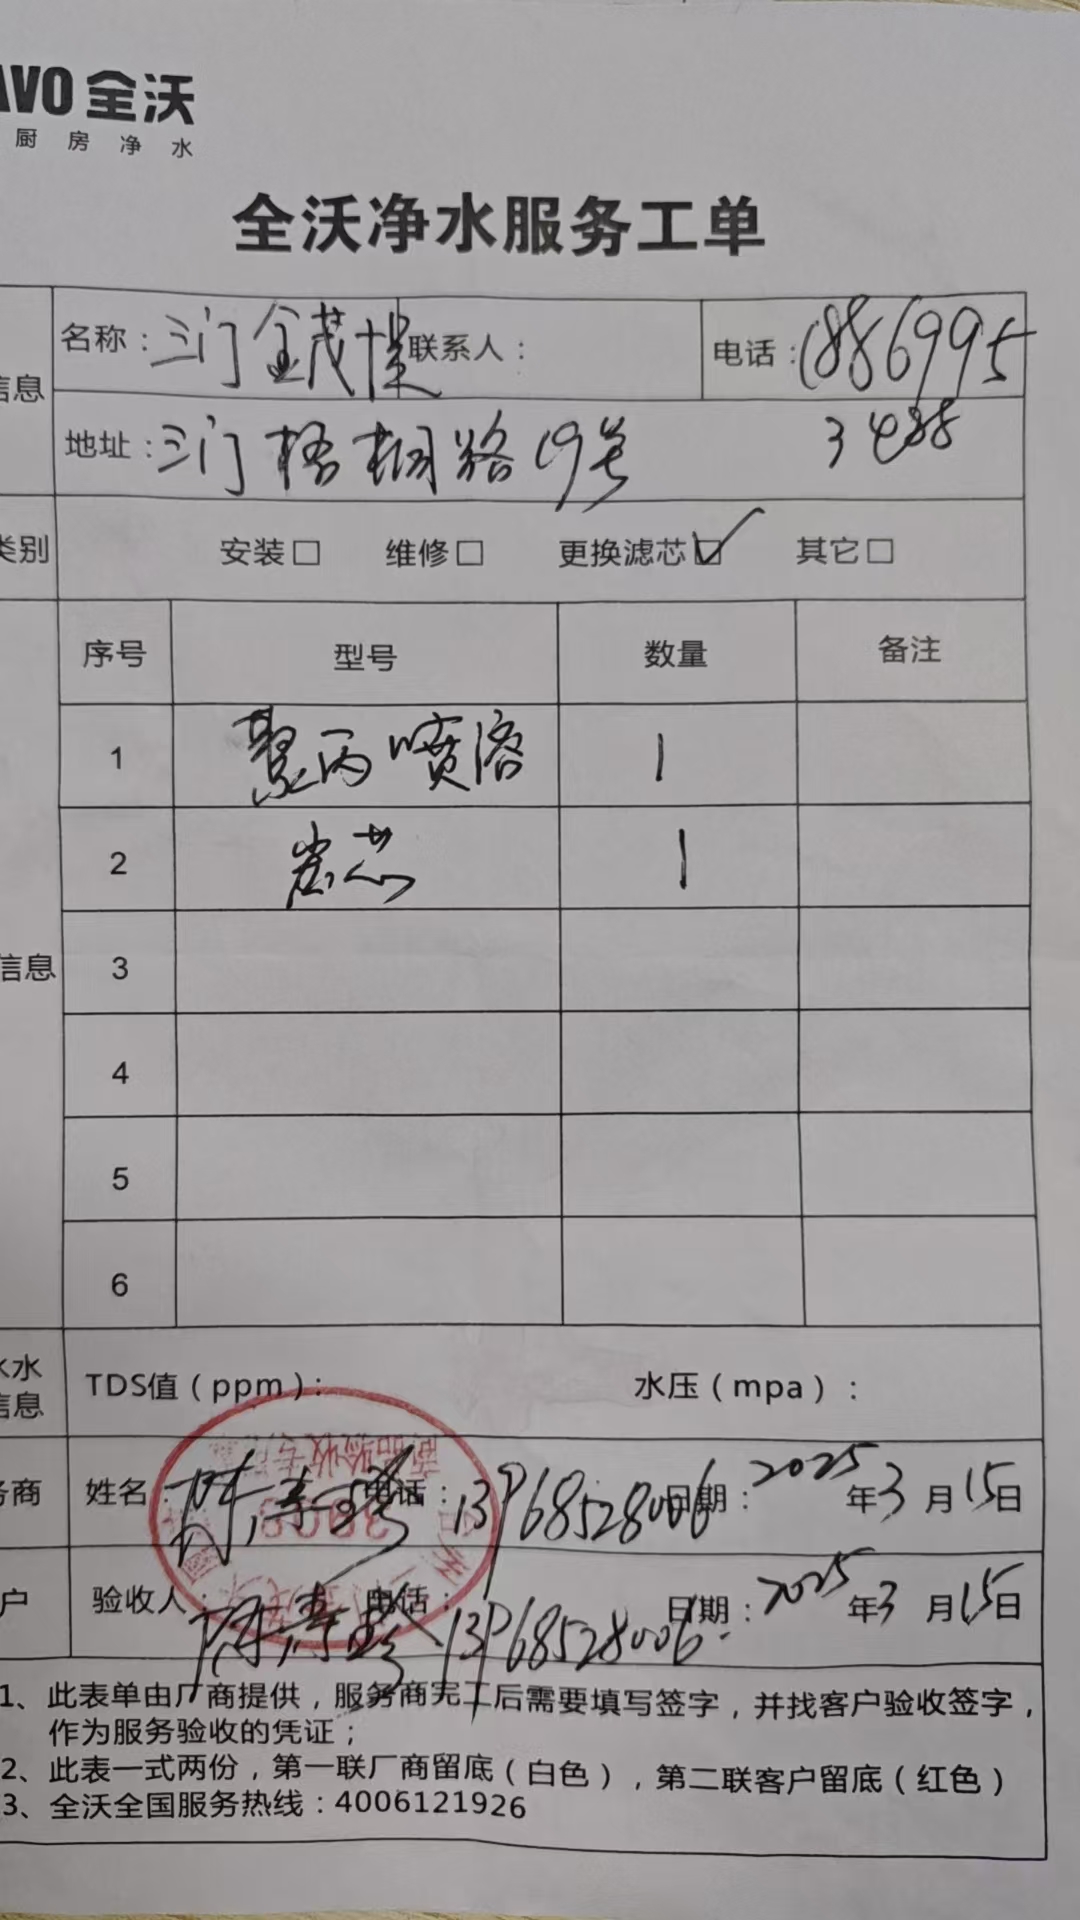 AVO 全沃
厨房净水
全沃净水服务工单
信息
名称：三门金茂 联系人： 电话：1886995
3488
地址：三门梧桐路19号
类别
安装□ 维修□ 更换滤芯☑ 其它□
序号 型号 数量 备注
1 聚丙喷溶 1
2 炭芯 1
信息
3
4
5
6
水
信息
TDS值（ppm）： 水压（mpa）：
务商
姓名： 电话：13968528006 日期：2025年3月15日
户
验收人： 电话：13968528006 日期：2025年3月15日
1、此表单由厂商提供，服务商完工后需要填写签字，并找客户验收签字，
作为服务验收的凭证；
2、此表一式两份，第一联厂商留底（白色），第二联客户留底（红色）
3、全沃全国服务热线：4006121926